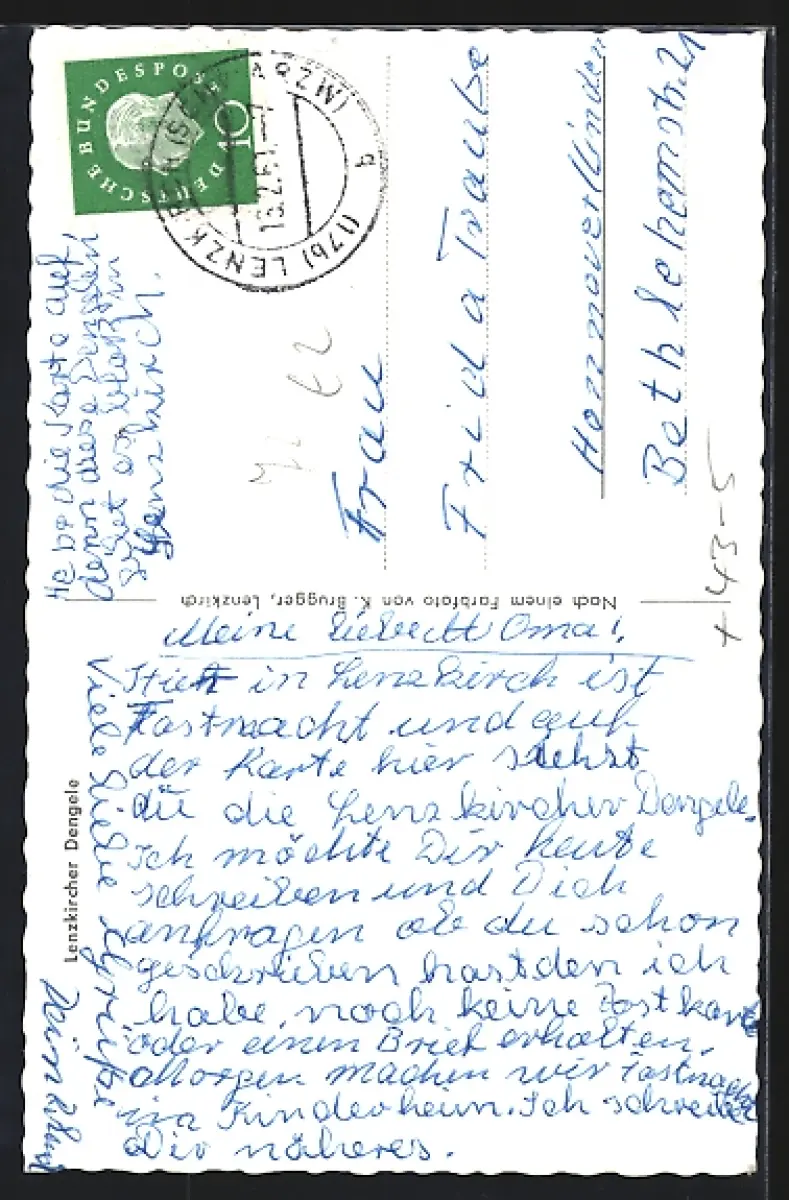 DEUTSCHE BUNDESPOST
10
(17b) LENZKIRCH (SCHWARZW)
b
13.2.61.-7
Frau
Frida Traube
Hannover/Linden
Bethlehemstr. 21
+ 43-5
Hebe die Karte auf
denn diese Dengelen
gibt es bloß im
Lenzkirch.
Nach einem Farbfoto von K. Brugger, Lenzkirch
Lenzkircher Dengele
Meine liebe Oma!
Hier in Lenzkirch ist
Fastnacht und auf
der Karte hier siehst
du die Lenzkircher Dengele.
Ich möchte Dir heute
schreiben und Dich
anfragen ob du schon
geschrieben hast den ich
habe noch keine Postkarte
oder einen Brief erhalten.
Morgen machen wir Fastnacht
im Kinderheim. Ich schreibe
Dir näheres.
Viele liebe Grüße